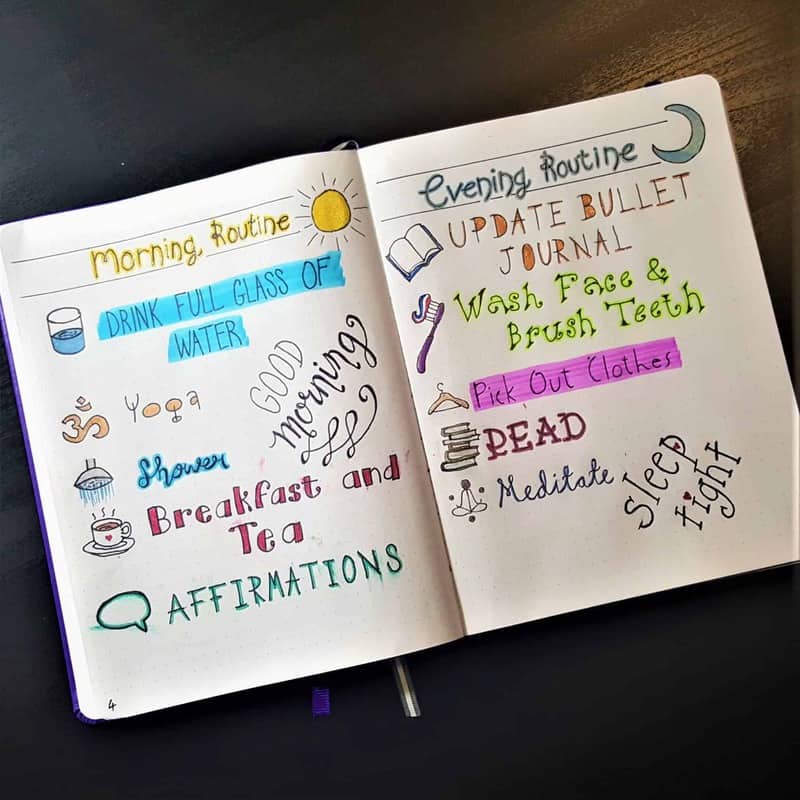 Morning Routine
DRINK FULL GLASS OF
WATER
Yoga
GOOD
morning
Shower
Breakfast and
Tea
AFFIRMATIONS
4
Evening Routine
UPDATE BULLET
JOURNAL
Wash Face &
Brush Teeth
Pick Out Clothes
READ
Meditate
sleep
tight